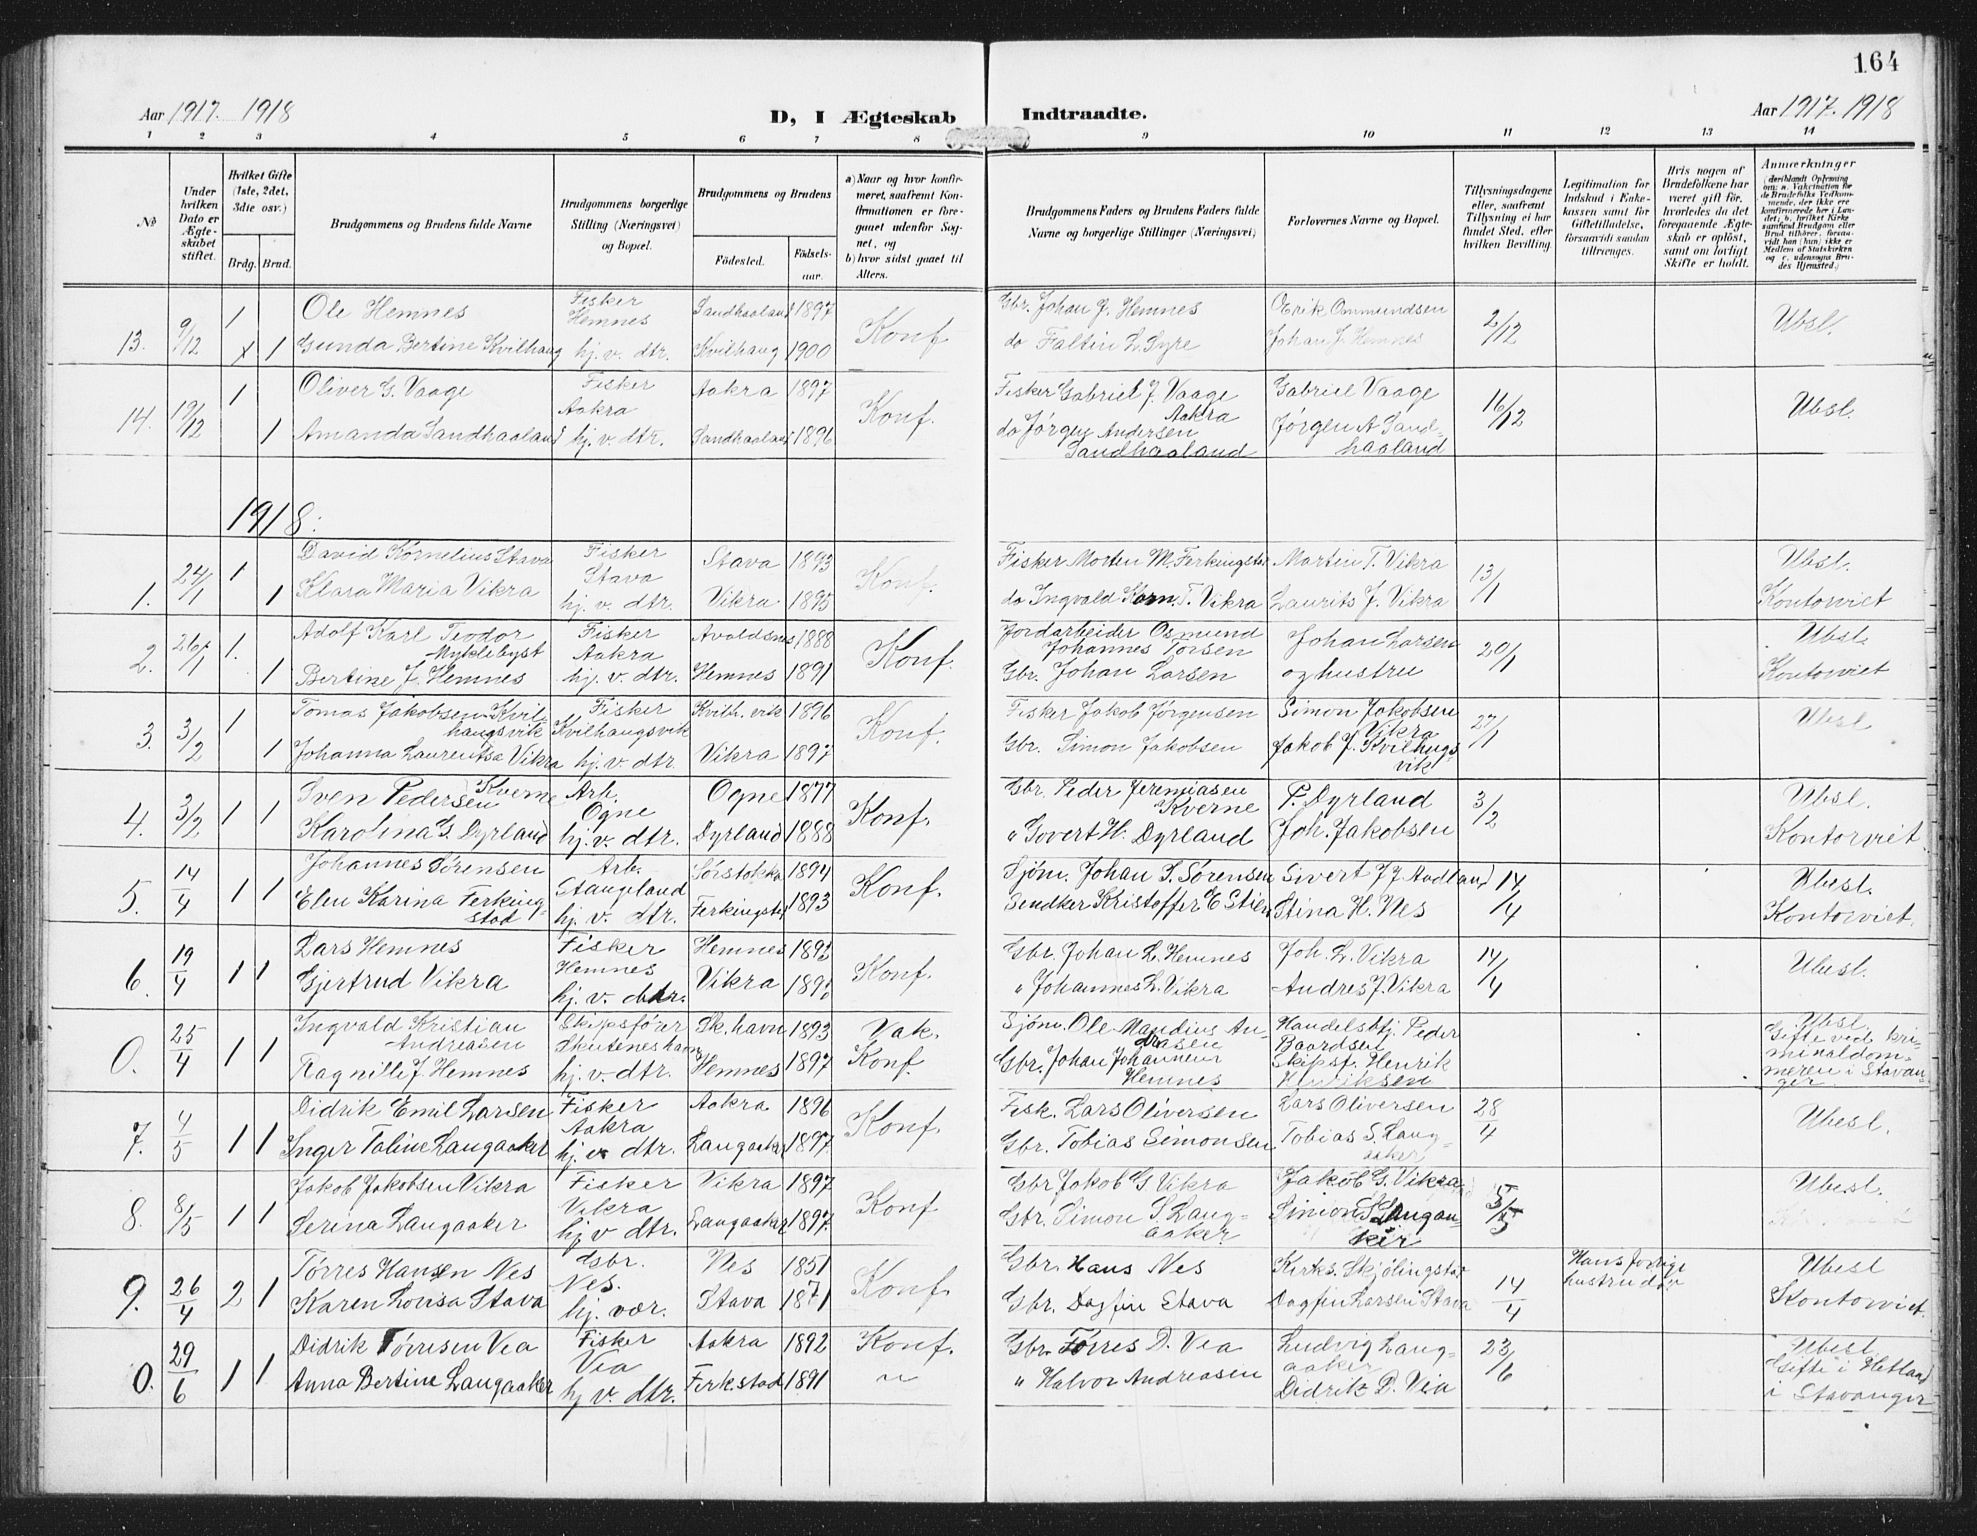 164
Aar 1917. 1918
D, I Ægteskab
Indtraadte.
Aar 1917. 1918
1 2 3 4 5 6 7 8 9 10 11 12 13 14
No
Under hvilken Dato er Ægteskabet stiftet.
Hvilket Gifte (1ste, 2det, 3die osv.)
Brdg. Brud.
Brudgommens og Brudens fulde Navne
Brudgommens borgerlige Stilling (Næringsvei) og Bopæl.
Brudgommens og Brudens
Fødested.
Fødselsaar.
a) Naar og hvor konfirmeret, saafremt Konfirmationen er foregaaet udenfor Sognet, og
b) hvor sidst gaaet til Alters.
Brudgommens Faders og Brudens Faders fulde Navne og borgerlige Stillinger (Næringsvei)
Forlovernes Navne og Bopæl.
Tillysningsdagene eller, saafremt Tillysning ei har fundet Sted, efter hvilken Bevilling.
Legitimation for Indskud i Enkekassen samt for Giftetilladelse, forsaavidt saadan tiltrænges.
Hvis nogen af Brudefolkene har været gift før, hvorledes da det foregaaende Ægteskab er opløst, samt om lovligt Skifte er holdt.
Anmærkninger
(deriblandt Oplysning om: a. Vakcination for de Brudefolks Vedkommende, der ikke ere konfirmerede her i Landet; b. hvilket Kirkesamfund Brudgom eller Brud tilhører, forsaavidt han (hun) ikke er Medlem af Statskirken og c. udensogns Brudes Hjemsted.)
13. 9/12 1 Ole Hemnes Fisker Hemnes Sandhaaland 1897 Konf Gbr. Johan J. Hemnes Ommundsen 2/12 Ubsl.
1 Gunda Bertine Kvilhaug hj. v. dtr. Kvilhaug 1900 do Faltin L. Syre Johan J. Hemnes
14. 19/12 1 Oliver G. Vaage Fisker Aakra Aakra 1897 Konf. Fisker Gabriel J. Vaage Aakra Gabriel Vaage 16/12 Ubsl.
1 Amanda Sandhaaland hj. v. dtr. Sandhaaland 1896 do Jørgen Andersen Sandhaaland Jørgen A Sandhaaland
1918:
1. 24/1 1 David Kornelius Stava Fisker Stava Stava 1893 Konf. Fisker Morten M. Ferkingstad Martin T. Vikra 13/1 Ubsl.
1 Klara Maria Vikra hj. v. dtr. Vikra 1895 do Ingvald Korn. T. Vikra Laurits J. Vikra Kontorviet
2. 26/1 1. Adolf Karl Teodor Myklebyst Fisker Aakra Avaldsnes 1888 Konf. Jordarbeider Osmund Johannes Torsen Johan Larsen 20/1 Ubsl.
1 Bertine J. Hemnes hj. v. dtr. Hemnes 1891 Gbr. Johan Larsen og hustru Kontorviet
3. 3/2 1 Tomas Jakobsen Kvilhaugsvik Fisker Kvilhaugsvik Kvilh. vik 1896 Konf. Fisker Jakob Jørgensen Simon Jakobsen Vikra 27/1 Ubsl
1 Johanna Laurentsa Vikra hj. v. dtr. Vikra 1897 Gbr. Simon Jakobsen Jakob J. Kvilhaugsvik
4. 3/2 1 1 Sven Pedersen Kverne Arb. Ogne Ogne 1877 Konf. Gbr. Peder Jeremiasen Kverne P. Dyrland 3/2 Ubsl.
Karolina G. Dyrland hj. v. dtr. Dyrland 1888 " Govert H. Dyrland Joh. Jakobsen Kontorviet.
5. 14/4 1 1 Johannes Sørensen Arb. Stangeland Sørstokke 1894 Konf. Sjøm. Johan S. Sørensen Sivert J. Aadland 14/4 Ubesl.
Elen Karina Ferkingstad hj. v. dtr. Ferkingstad 1893 Kristoffer E Stien Stina H. Nes Kontorviet.
6. 19/4 1 1 Lars Hemnes Fisker Hemnes Hemnes 1893 Konf. Gbr. Johan L. Hemnes Joh. L. Vikra 14/4 Ubesl.
Gjertrud Vikra hj. v. dtr. Vikra " Johannes L. Vikra Andres J. Vikra
0. 25/4 1 1 Ingvald Kristian Andreasen Skipsfører Skuteneshavn Sk. havn 1893 Vak. Sjøm. Ole Mandius Andreasen Handelsbtj. Peder Baardsen Ubsl
Ragnille J. Hemnes hj. v. dtr. Hemnes 1897 Konf. Gbr. Johan Johannesen Hemnes Skipsf. Henrik Henriksen Gifte ved kriminaldommeren i Stavanger
7. 4/5 1 1 Didrik Emil Larsen Fisker Aakra Aakra 1896 Konf. Fisk. Lars Oliversen Lars Oliversen 28/4 Ubesl.
Inger Taline Langaaker hj. v. dtr. Langaaker 1897. Gbr. Tobias Simonsen Tobias S. Langaaker
8. 8/5 1 1 Jakob Jakobsen Vikra Fisker Vikra Vikra 1897 Konf Gbr Jakob G Vikra Jakob G. Vikra 5/5 Ubesl.
Serina Langaaker hj v dtr. Langaaker 1897. Gbr. Simon S. Langaaker Simon S Langaaker
9. 26/4 2 1 Tørres Hansen Nes Gbr. Nes. Nes 1851 Konf. Gbr. Hans Nes Kirks. Skjølingstad 14/4 Hans forrige hustru død Ubesl
Karen Lovisa Stava hj. vær. Stava 1871 Gbr. Dagfin Stava Dagfin Larsen Stava Kontorviet.
0. 29/6 1 1 Didrik Tørresen Vea Fisker Vea Aakra 1892 Konf. Gbr. Tørres D. Vea Ludvig Langaaker 23/6 Ubesl.
Anna Bertine Langaaker hj v. dtr. Ferkstad 1891 " " Halvor Andreasen Didrik D. Veia Gifte i Hetland i Stavanger